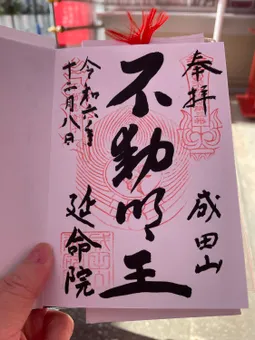 奉拝
成田山
不動明王
令和六年
十二月八日
延命院